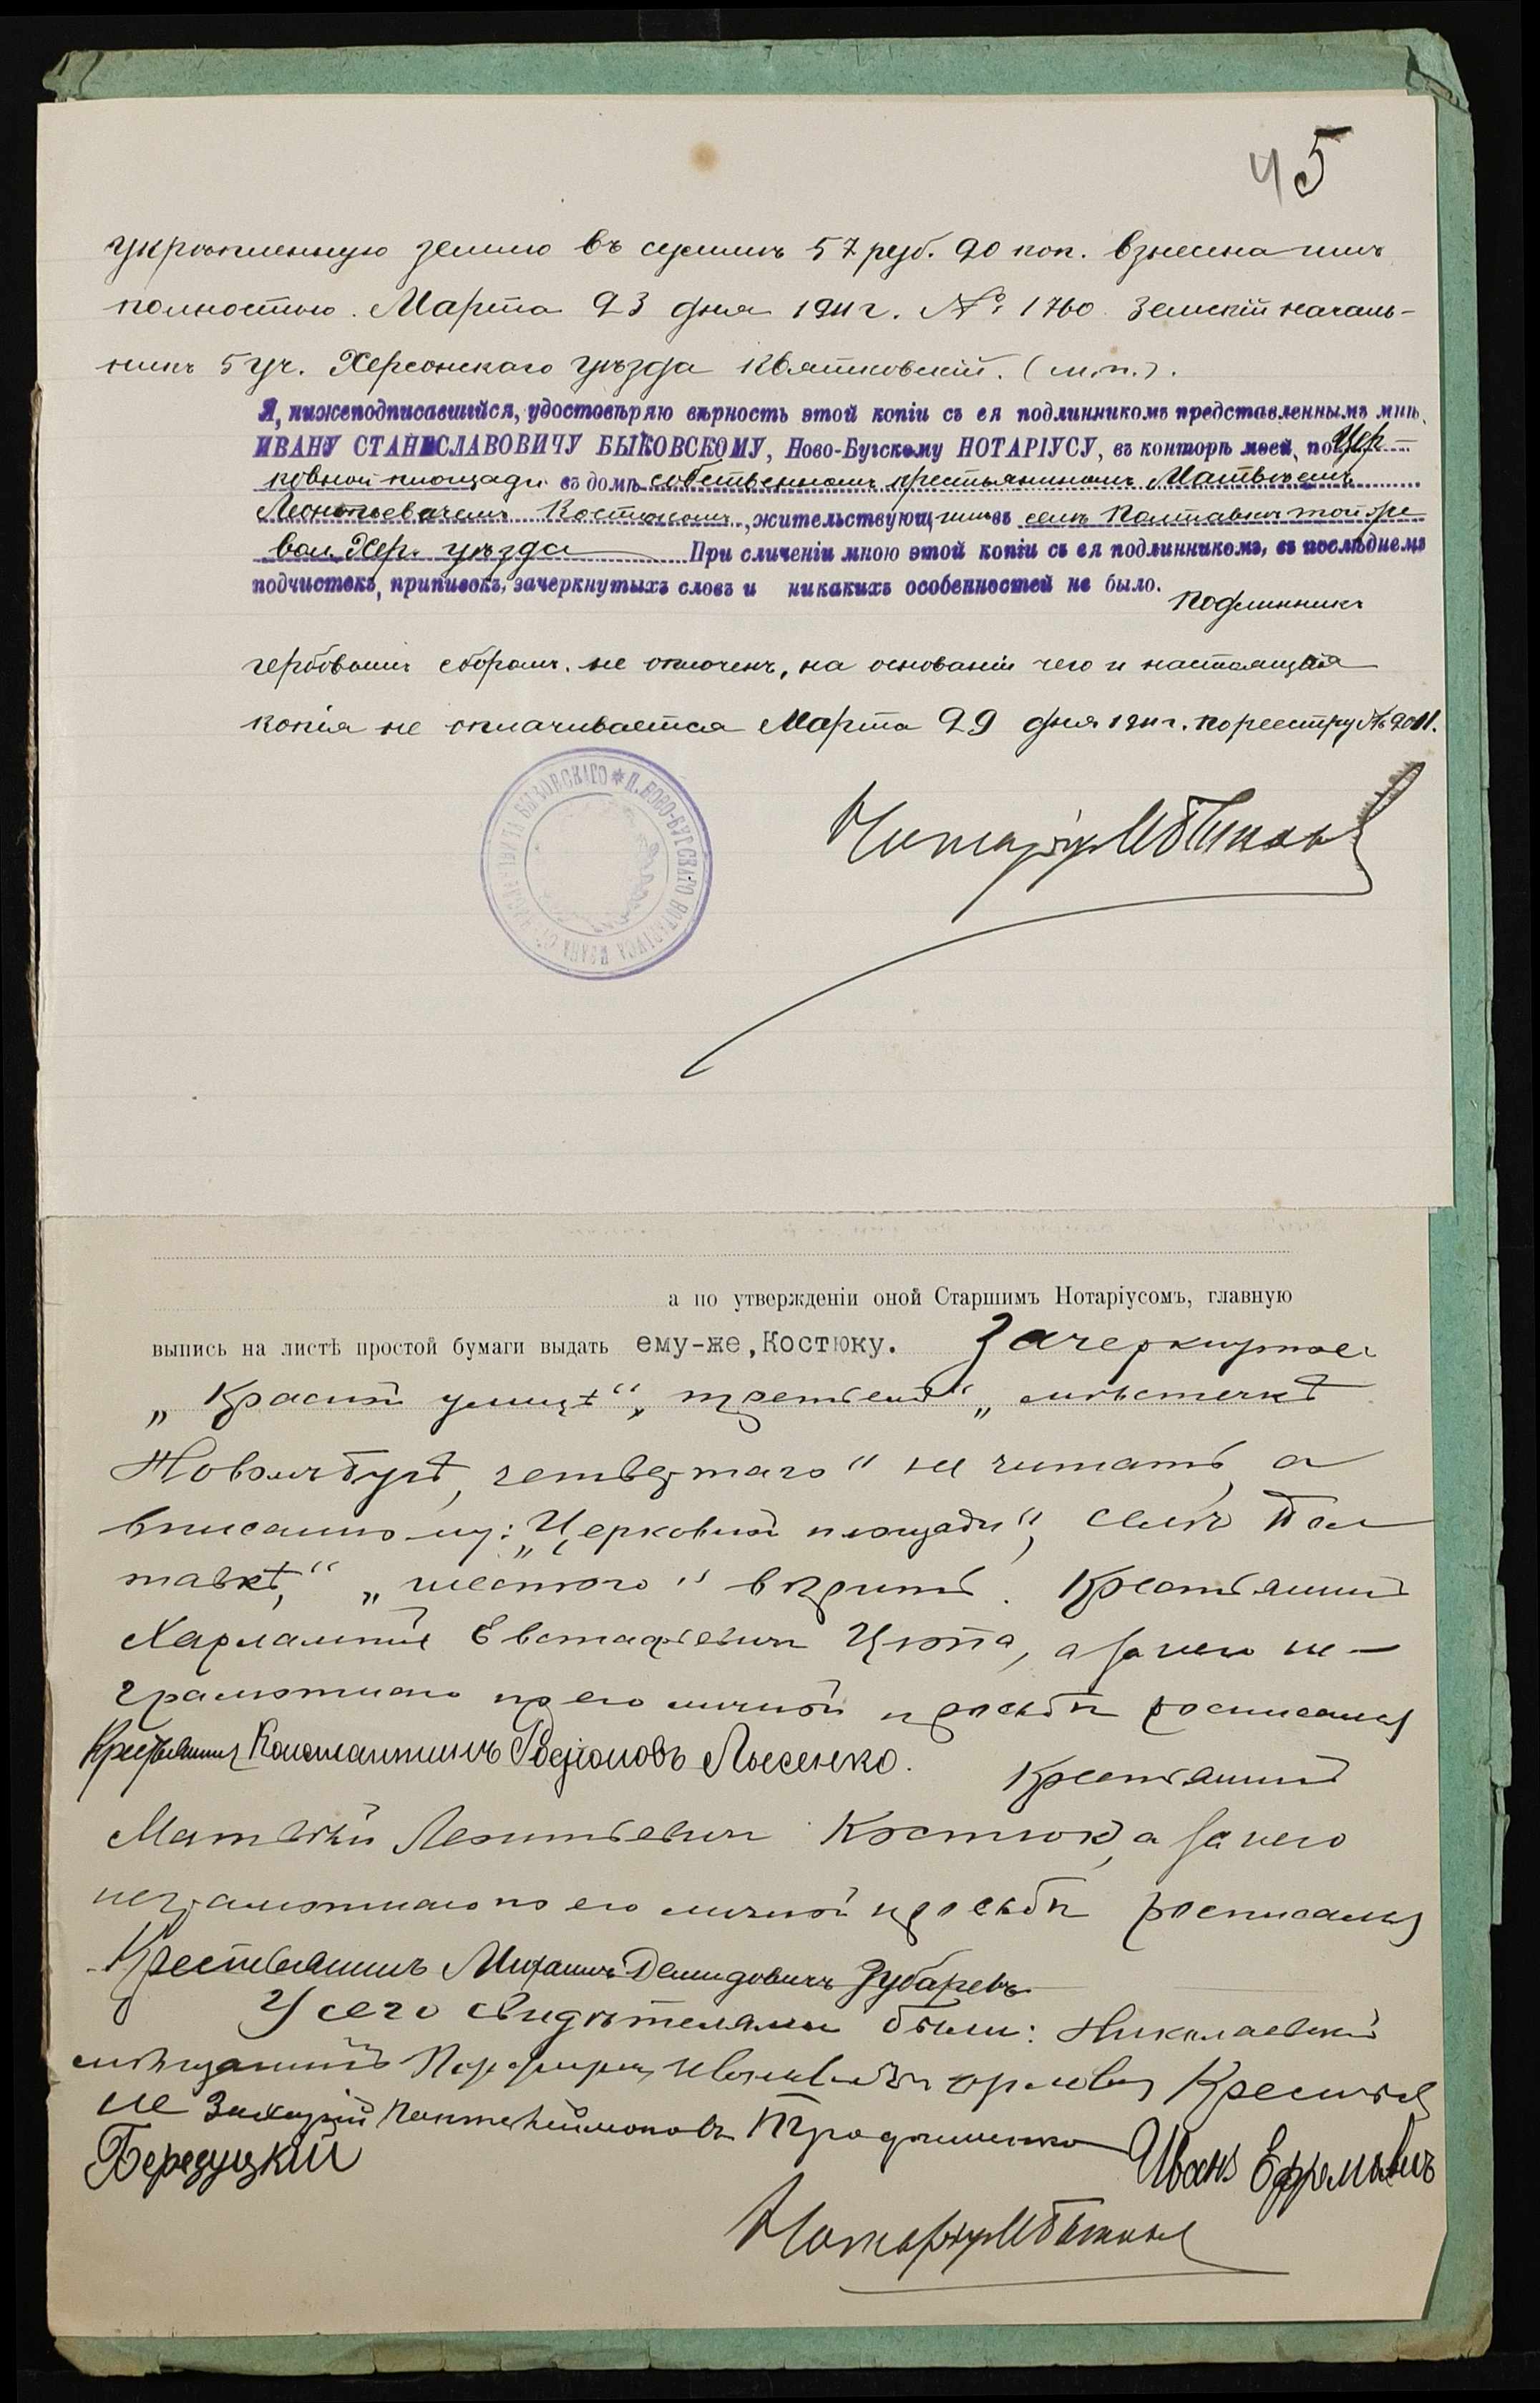 45
укрѣпленную землю въ суммѣ 57 руб. 20 коп. взнесена имъ
полностью. Марта 23 дня 1911 г. № 1760. Земскій Началь-
никъ 5 уч. Херсонскаго уѣзда Квятковскій. (м.п.).
Я, нижеподписавшійся, удостовѣряю вѣрность этой копіи съ ея подлинникомъ представленнымъ мнѣ,
ИВАНУ СТАНИСЛАВОВИЧУ БЫКОВСКОМУ, Ново-Бугскому НОТАРІУСУ, въ конторѣ моей, по Цер-
ковной площади въ домѣ собственномъ крестьяниномъ Матвѣемъ
Леонтьевичемъ Костюкомъ, жительствующимъ въ селѣ Полтавкѣ той же
вол. Хер. уѣзда При сличеніи мною этой копіи съ ея подлинникомъ, въ послѣднемъ
подчистокъ, приписокъ, зачеркнутыхъ словъ и никакихъ особенностей не было.
Подлинникъ
гербовымъ сборомъ не оплоченъ, на основаніи чего и настоящая
копія не оплачивается Марта 29 дня 1911 г. по реестру № 2011.
П. НОВО-БУГСКАГО НОТАРІУСА ИВАНА БЫКОВСКАГО
Нотаріусъ И Быков
а по утвержденіи оной Старшимъ Нотаріусомъ, главную
выпись на листѣ простой бумаги выдать ему-же, Костюку. Зачеркнутое:
„Красной улицѣ“, третьей“ „мѣстечкѣ
Новомъ Бугѣ, четвертаго“ не читать, а
вписанному: „Церковной площади“, селѣ Пол
тавкѣ,“ „шестого“ вѣрить. Крестьянинъ
Харлампій Евстафіевичъ Цюпа, а за него не-
грамотнаго по его личной просьбѣ росписался
Крестьянинъ Константинъ Родіоновъ Лысенко.
Крестьянинъ
Матвѣй Леонтьевичъ Костюкъ, а за него
неграмотнаго по его личной просьбѣ росписался
Крестьянинъ Михаилъ Демидовичъ Зубаревъ
У сего свидѣтелями были: Николаевскій
мѣщанинъ Порфирій Крестья
не Захарій Пантелеймоновъ Трофименко Иванъ Ефремовичъ
Бередуцкій
Нотаріусъ И Быков